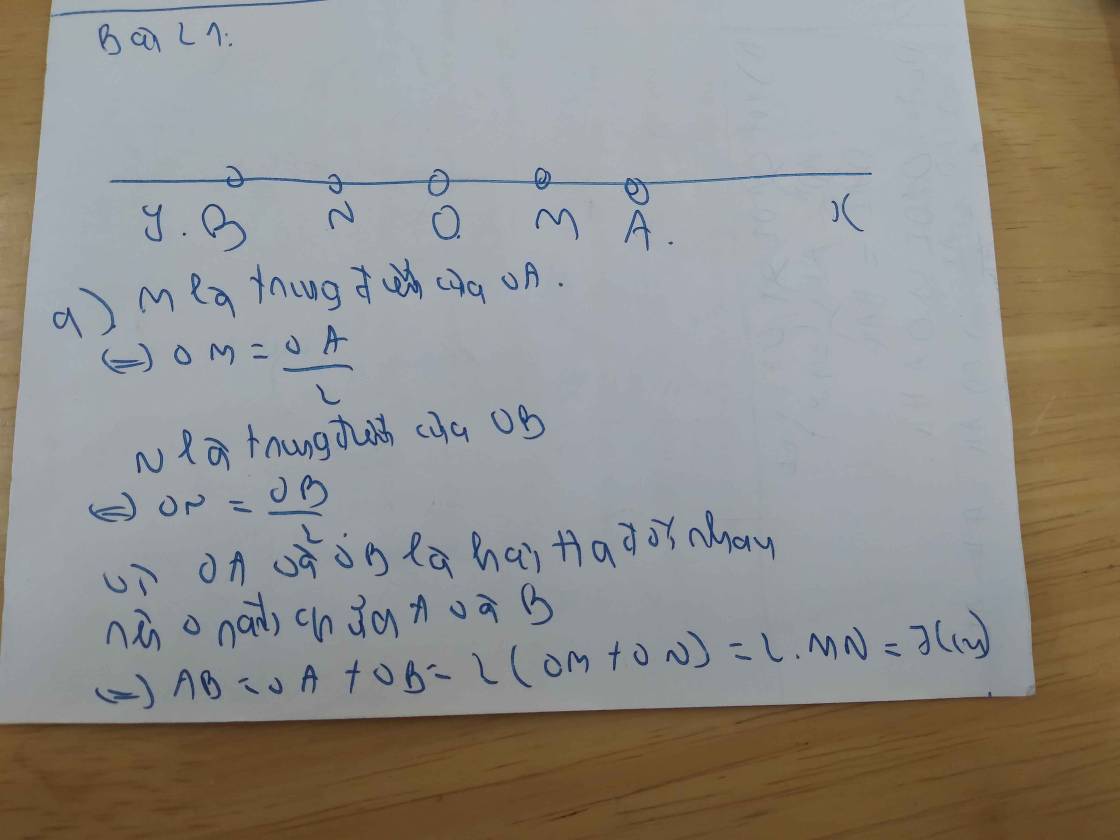 Bài 21:
y. B N O M A. x
a) M là trung điểm của OA.
⇔ OM = OA/2
N là trung điểm của OB
⇔ ON = OB/2
Vì OA và OB là hai tia đối nhau
nên O nằm giữa A và B
⇔ AB = OA + OB = 2(OM + ON) = 2.MN =